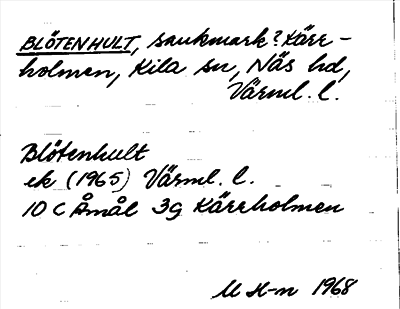 BLÖTENHULT, sankmark? Kärr-
holmen, Kila sn, Näs hd,
Värml. l.
Blötenhult
ek (1965) Värml. l.
10 C Åmål 3g Kärrholmen
M H-n 1968